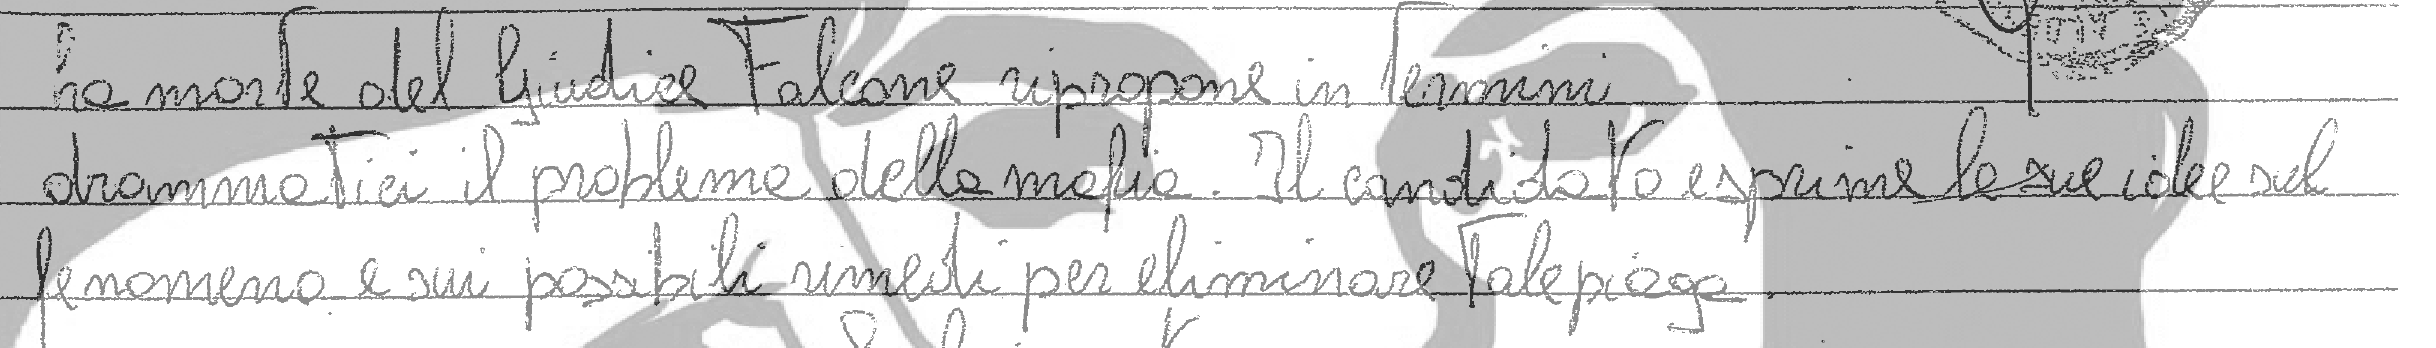 La morte del Giudice Falcone ripropone in termini
drammatici il problema della mafia. Il candidato esprima le sue idee sul
fenomeno e sui possibili rimedi per eliminare tale piaga.